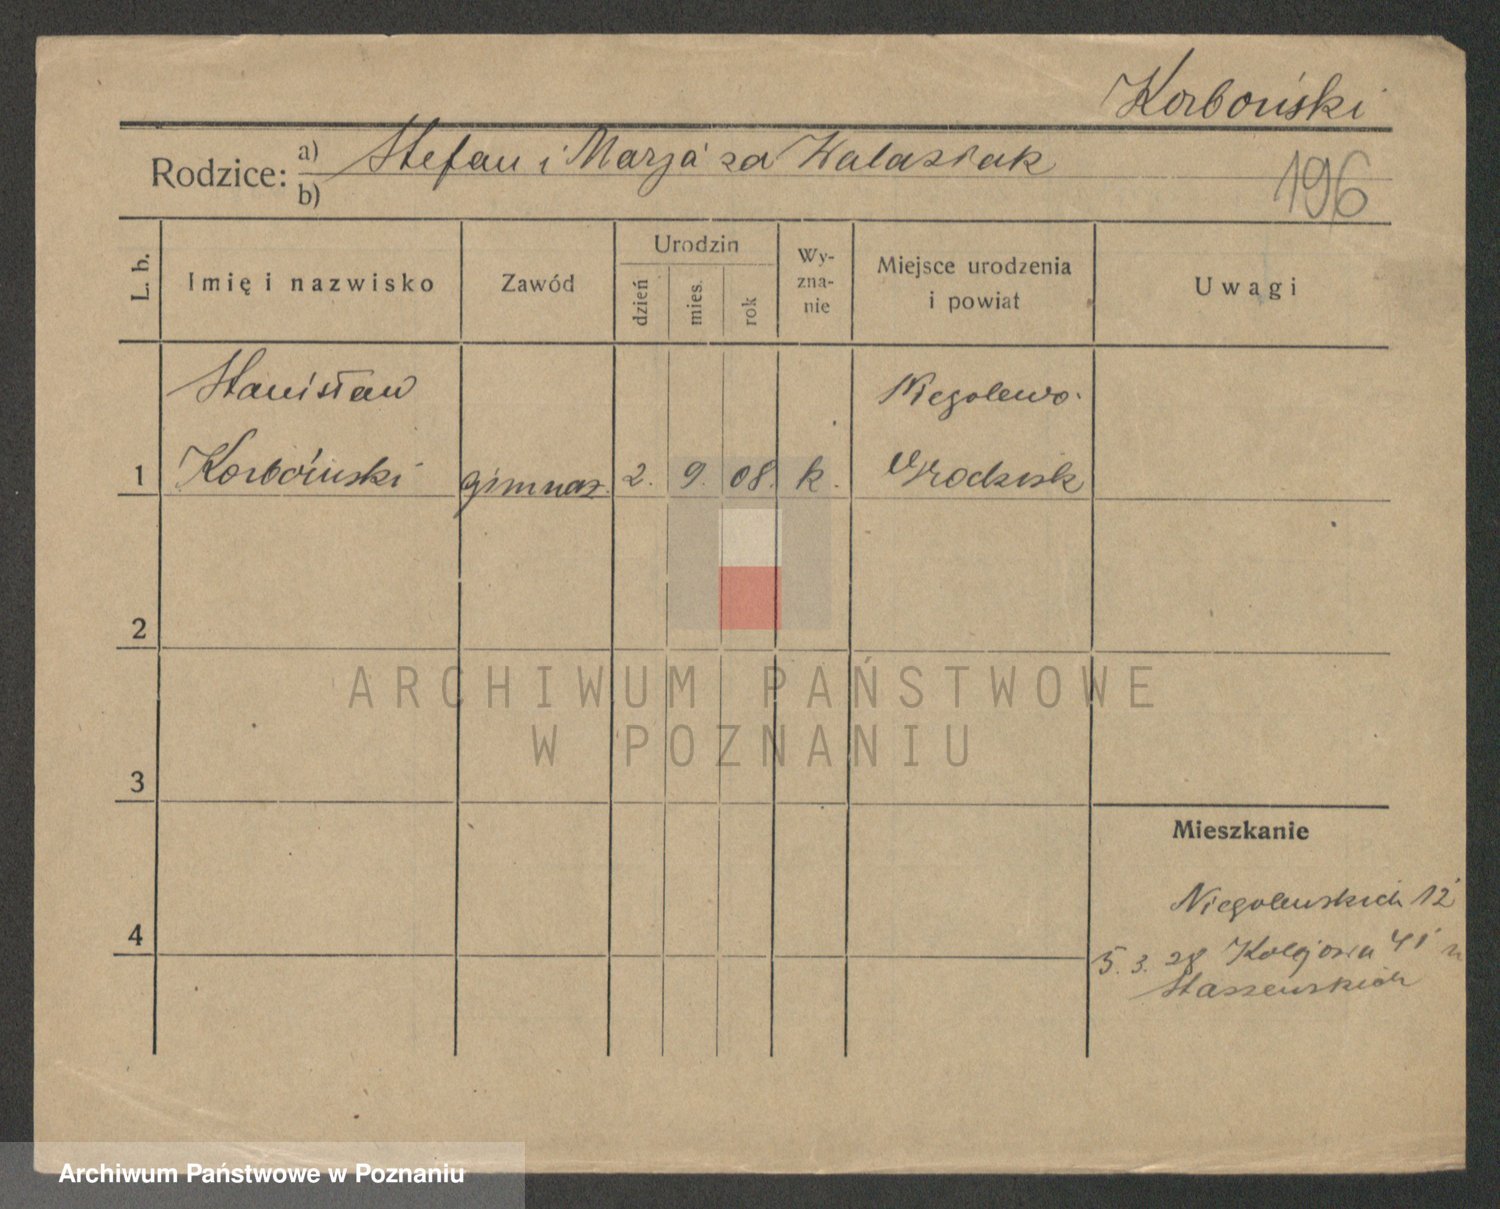 Korboński
Rodzice: a) Stefan i Marja za Walaziak
b)
196
L. b.
Imię i nazwisko
Zawód
Urodzin
dzień
mies.
rok
Wy-
zna-
nie
Miejsce urodzenia
i powiat
Uwagi
Stanisław
Niegolewo.
1 Korboński gimnaz. 2. 9. 08. k. Grodzisk
2
ARCHIWUM PAŃSTWOWE
W POZNANIU
3
Mieszkanie
Niegolewskich 12
4
5. 3. 28 Kolejowa 41
Staszewskich
Archiwum Państwowe w Poznaniu